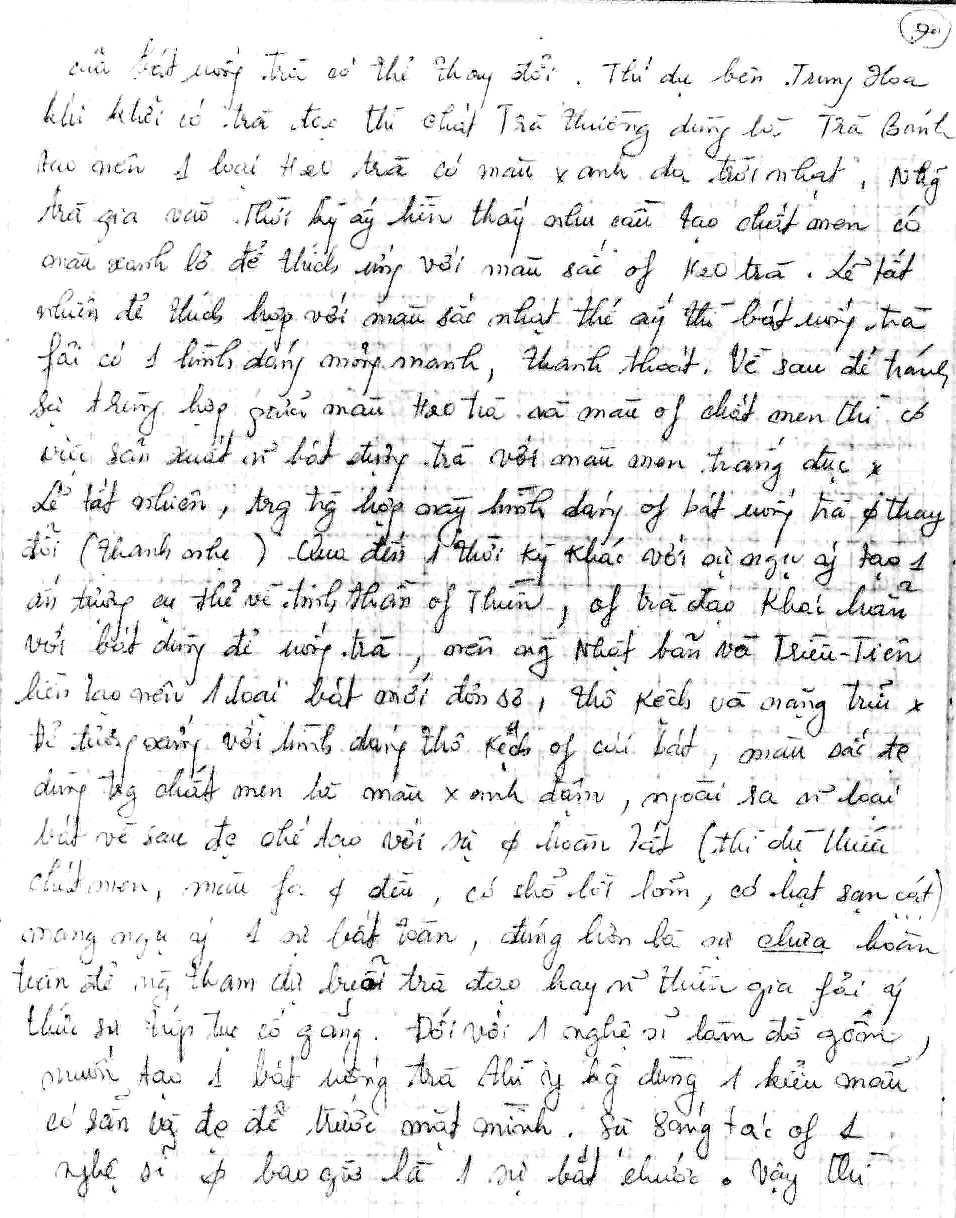 90
của bát uống trà có thể thay đổi. Thí dụ bên Trung Hoa
khi khởi có trà đạo thì chất Trà thường dùng là Trà Bánh
tạo nên 1 loại H2O trà có màu xanh da trời nhạt. Nhg
trà gia vào thời kỳ ấy liền thấy nhu cầu tạo chất men có
màu xanh lơ để thích ứng với màu sắc of H2O trà. Lẽ tất
nhiên để thích hợp với màu sắc nhạt thế ấy thì bát uống trà
fải có 1 hình dáng mỏng manh, thanh thoát. Về sau để tránh
sự trùng hợp giữa màu H2O trà và màu of chất men thì có
việc sản xuất n~ bát đựng trà với màu men trắng đục x
Lẽ tất nhiên, trg tg~ hợp này hình dáng of bát uống trà ∮ thay
đổi (thanh nhẹ) Qua đến 1 thời kỳ khác với sự ngụ ý tạo 1
ấn tượng cụ thể về tinh thần of Thiền, of trà đạo khai luận
với bát dùng để uống trà, nên ng~ Nhật bản và Triều-Tiên
liền tạo nên 1 loại bát mới đơn sơ, thô kệch và nặng trĩu x
Để tương xứng với hình dáng thô kệch of cái bát, màu sắc đc
dùng trg chất men là màu xanh đậm, ngoài ra n~ loại
bát về sau đc chế tạo với sự ∮ hoàn tất (thí dụ thiếu
chất men, màu fa ∮ đều, có chổ lồi lõm, có hạt sạn cát)
mang ngụ ý 1 sự bất toàn, đúng hơn là sự chưa hoàn
toàn để ng~ tham dự buổi trà đạo hay n~ thiền gia fải ý
thức sự tiếp tục cố gắng. Đối với 1 nghệ sĩ làm đồ gốm,
muốn tạo 1 bát uống trà thì ∮ dùng 1 kiểu mẫu
có sẵn và đc để trước mặt mình. Sự sáng tác of 1
nghệ sĩ ∮ bao giờ là 1 sự bắt chước. Vậy thì